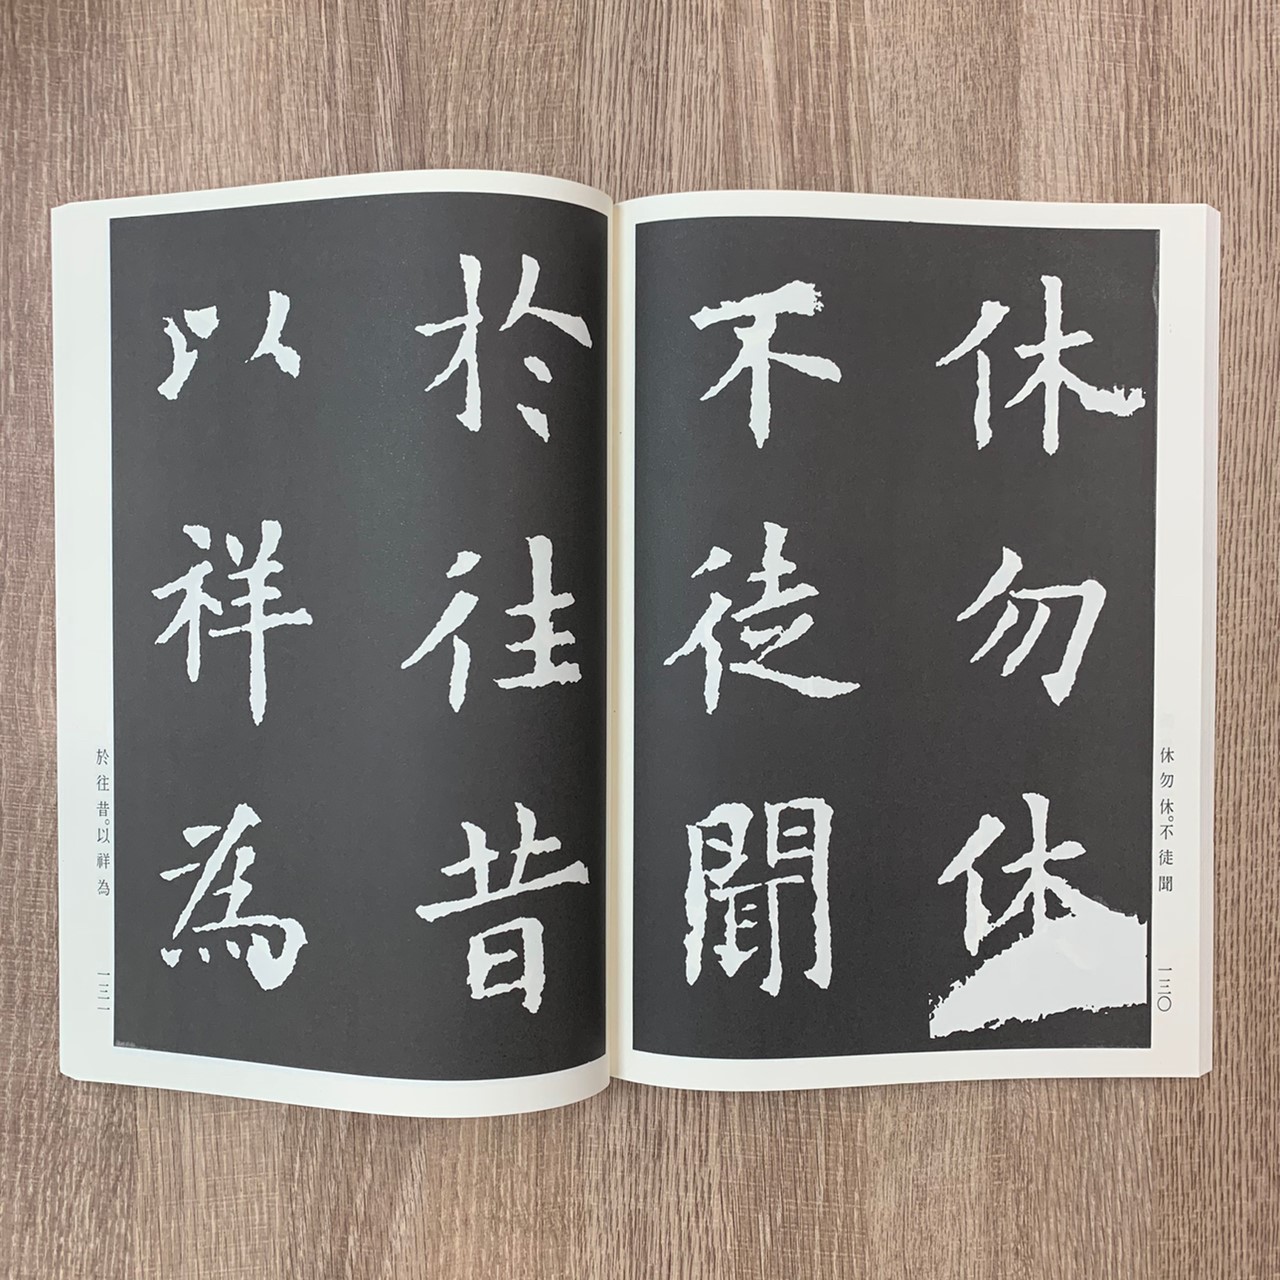 休勿休
不徒聞
休勿休。不徒聞
一三〇
於往昔
以祥為
於往昔。以祥為
一三一